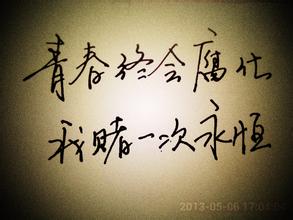 青春终会腐化
我赌一次永恒
2013-05-06